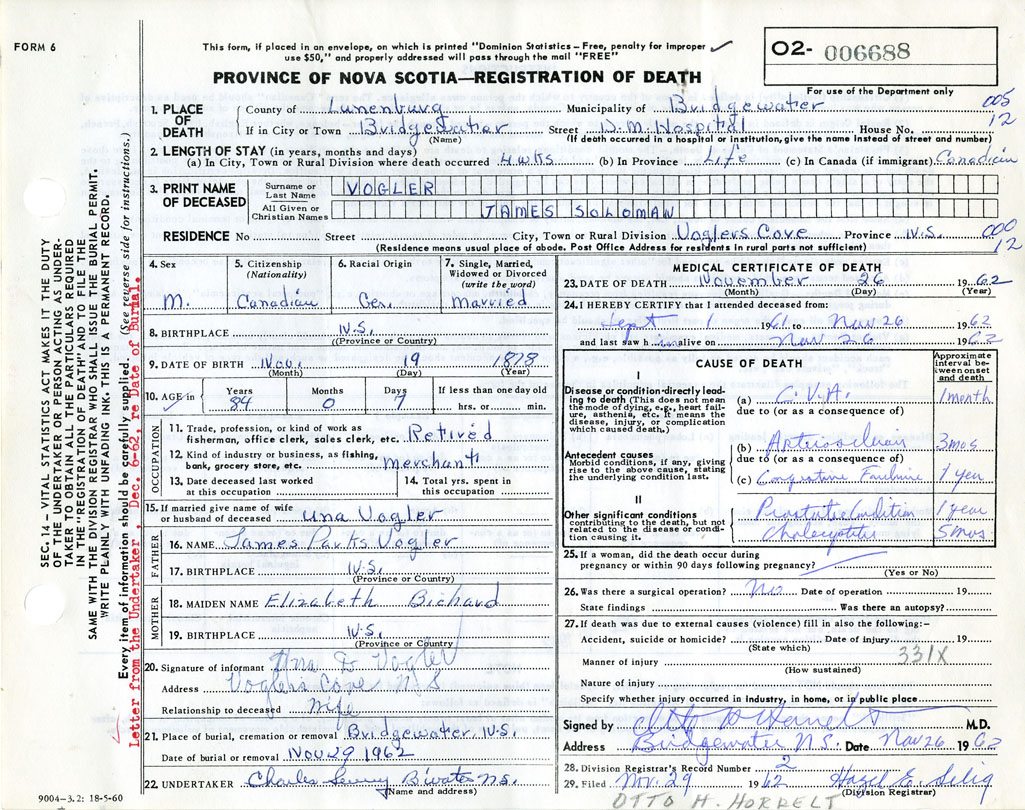 FORM 6
This form, if placed in an envelope, on which is printed "Dominion Statistics – Free, penalty for improper
use $50," and properly addressed will pass through the mail "FREE"
PROVINCE OF NOVA SCOTIA—REGISTRATION OF DEATH
O2- 006688
For use of the Department only
005
12
1. PLACE OF DEATH
County of Lunenburg Municipality of Bridgewater
If in City or Town Bridgewater Street D.M. Hospital House No.
(Name) (If death occurred in a hospital or institution, give the name instead of street and number)
2. LENGTH OF STAY (in years, months and days)
(a) In City, Town or Rural Division where death occurred 4 wks (b) In Province Life (c) In Canada (if immigrant) Canadian
3. PRINT NAME OF DECEASED
Surname or Last Name VOGLER
All Given or Christian Names JAMES SOLOMAN
RESIDENCE No Street City, Town or Rural Division Voglers Cove Province N.S.
000
12
(Residence means usual place of abode. Post Office Address for residents in rural parts not sufficient)
4. Sex M.
5. Citizenship (Nationality) Canadian
6. Racial Origin Ger.
7. Single, Married, Widowed or Divorced (write the word) Married
8. BIRTHPLACE N.S.
(Province or Country)
9. DATE OF BIRTH Nov. 19 1878
(Month) (Day) (Year)
10. AGE in Years 84 Months 0 Days 7 If less than one day old hrs. or min.
OCCUPATION
11. Trade, profession, or kind of work as
fisherman, office clerk, sales clerk, etc. Retired
12. Kind of industry or business, as fishing,
bank, grocery store, etc. Merchant
13. Date deceased last worked at this occupation
14. Total yrs. spent in this occupation
15. If married give name of wife
or husband of deceased Una Vogler
FATHER
16. NAME James Parks Vogler
17. BIRTHPLACE N.S.
(Province or Country)
MOTHER
18. MAIDEN NAME Elizabeth Bichard
19. BIRTHPLACE N.S.
(Province or Country)
20. Signature of informant Una D Vogler
Address Voglers Cove N S
Relationship to deceased Wife
21. Place of burial, cremation or removal Bridgewater, N.S.
Date of burial or removal Nov 29 1962
22. UNDERTAKER Charles B'water N.S.
(Name and address)
9004–3.2: 18-5-60
MEDICAL CERTIFICATE OF DEATH
23. DATE OF DEATH November 26 1962
(Month) (Day) (Year)
24. I HEREBY CERTIFY that I attended deceased from:
Sept 1 1961 to Nov 26 1962
and last saw him alive on Nov 26 1962
CAUSE OF DEATH
Approximate interval between onset and death
I
Disease or condition directly leading to death (This does not mean the mode of dying, e.g., heart failure, asthenia, etc. It means the disease, injury, or complication which caused death.)
(a) C.V.A. 1 month
due to (or as a consequence of)
Antecedent causes
Morbid conditions, if any, giving rise to the above cause, stating the underlying condition last.
(b) 3 mos
due to (or as a consequence of)
(c) Failure 1 year
II
Other significant conditions
contributing to the death, but not related to the disease or condition causing it.
Prostatic Condition 1 year
5 mos
25. If a woman, did the death occur during
pregnancy or within 90 days following pregnancy?
(Yes or No)
26. Was there a surgical operation? No Date of operation 19
State findings Was there an autopsy?
27. If death was due to external causes (violence) fill in also the following:–
Accident, suicide or homicide? Date of injury 19
(State which)
331X
Manner of injury
(How sustained)
Nature of injury
Specify whether injury occurred in industry, in home, or in public place
Signed by M.D.
Address Bridgewater N.S. Date Nov 26 1962
28. Division Registrar's Record Number 2
29. Filed Nov. 29 1962 Hazel E. Selig
(Division Registrar)
OTTO H. HORRELT
SEC. 14 – VITAL STATISTICS ACT MAKES IT THE DUTY
OF THE UNDERTAKER OR PERSON ACTING AS UNDERTAKER TO OBTAIN ALL THE PARTICULARS REQUIRED
IN THE "REGISTRATION OF DEATH" AND TO FILE THE
SAME WITH THE DIVISION REGISTRAR WHO SHALL ISSUE THE BURIAL PERMIT.
WRITE PLAINLY WITH UNFADING INK. THIS IS A PERMANENT RECORD.
Every item of information should be carefully supplied. (See reverse side for instructions.)
Letter from the Undertaker, Dec. 6-62, re Date of Burial.